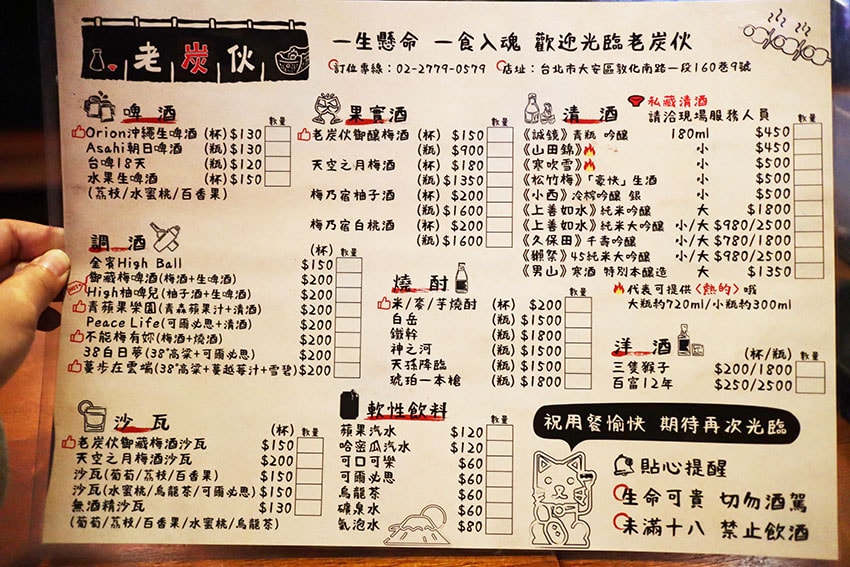 老炭伙
一生懸命 一食入魂 歡迎光臨老炭伙
訂位專線：02-2779-0579 店址：台北市大安區敦化南路一段160巷9號
啤酒 數量
Orion沖繩生啤酒 (杯) $130
Asahi朝日啤酒 (瓶) $130
台啤18天 (瓶) $120
水果生啤酒 (杯) $150
(荔枝/水蜜桃/百香果)
調酒 (杯) 數量
金賓High Ball $150
御藏梅啤酒(梅酒+生啤酒) $200
High柚啤兒(柚子酒+生啤酒) $200
青蘋果樂園(青森蘋果汁+清酒) $200
Peace Life(可爾必思+清酒) $200
不能梅有妳(梅酒+燒酒) $200
38白日夢(38°高粱+可爾必思) $200
蔓步在雲端(38°高粱+蔓越莓汁+雪碧) $200
沙瓦 (杯) 數量
老炭伙御藏梅酒沙瓦 $150
天空之月梅酒沙瓦 $200
沙瓦(葡萄/荔枝/百香果) $150
沙瓦(水蜜桃/烏龍茶/可爾必思) $150
無酒精沙瓦 $130
(葡萄/荔枝/百香果/水蜜桃/烏龍茶)
果實酒 數量
老炭伙御釀梅酒 (杯) $150
(瓶) $900
天空之月梅酒 (杯) $180
(瓶) $1350
梅乃宿柚子酒 (杯) $200
(瓶) $1600
梅乃宿白桃酒 (杯) $200
(瓶) $1600
燒酎 數量
米/麥/芋燒酎 (杯) $200
白岳 (瓶) $1500
鐵幹 (瓶) $1500
神之河 (瓶) $1500
天孫降臨 (瓶) $1500
琥珀一本槍 (瓶) $1800
軟性飲料 數量
蘋果汽水 $120
哈密瓜汽水 $120
可口可樂 $60
可爾必思 $60
烏龍茶 $60
礦泉水 $60
氣泡水 $80
清酒 私藏清酒
請洽現場服務人員 數量
《誠鏡》青瓶 吟釀 180ml $450
《山田錦》 小 $450
《寒吹雪》 小 $500
《松竹梅》「豪快」生酒 小 $500
《小西》冷榨吟釀 銀 小 $500
《上善如水》純米吟釀 大 $1800
《上善如水》純米大吟釀 小/大 $980/2500
《久保田》千壽吟釀 小/大 $780/1800
《獺祭》45純米大吟釀 小/大 $980/2500
《男山》寒酒 特別本釀造 大 $1350
代表可提供〈熱的〉哦
大瓶約720ml/小瓶約300ml
洋酒 (杯/瓶) 數量
三隻猴子 $200/1800
百富12年 $250/2500
祝用餐愉快 期待再次光臨
貼心提醒
生命可貴 切勿酒駕
未滿十八 禁止飲酒